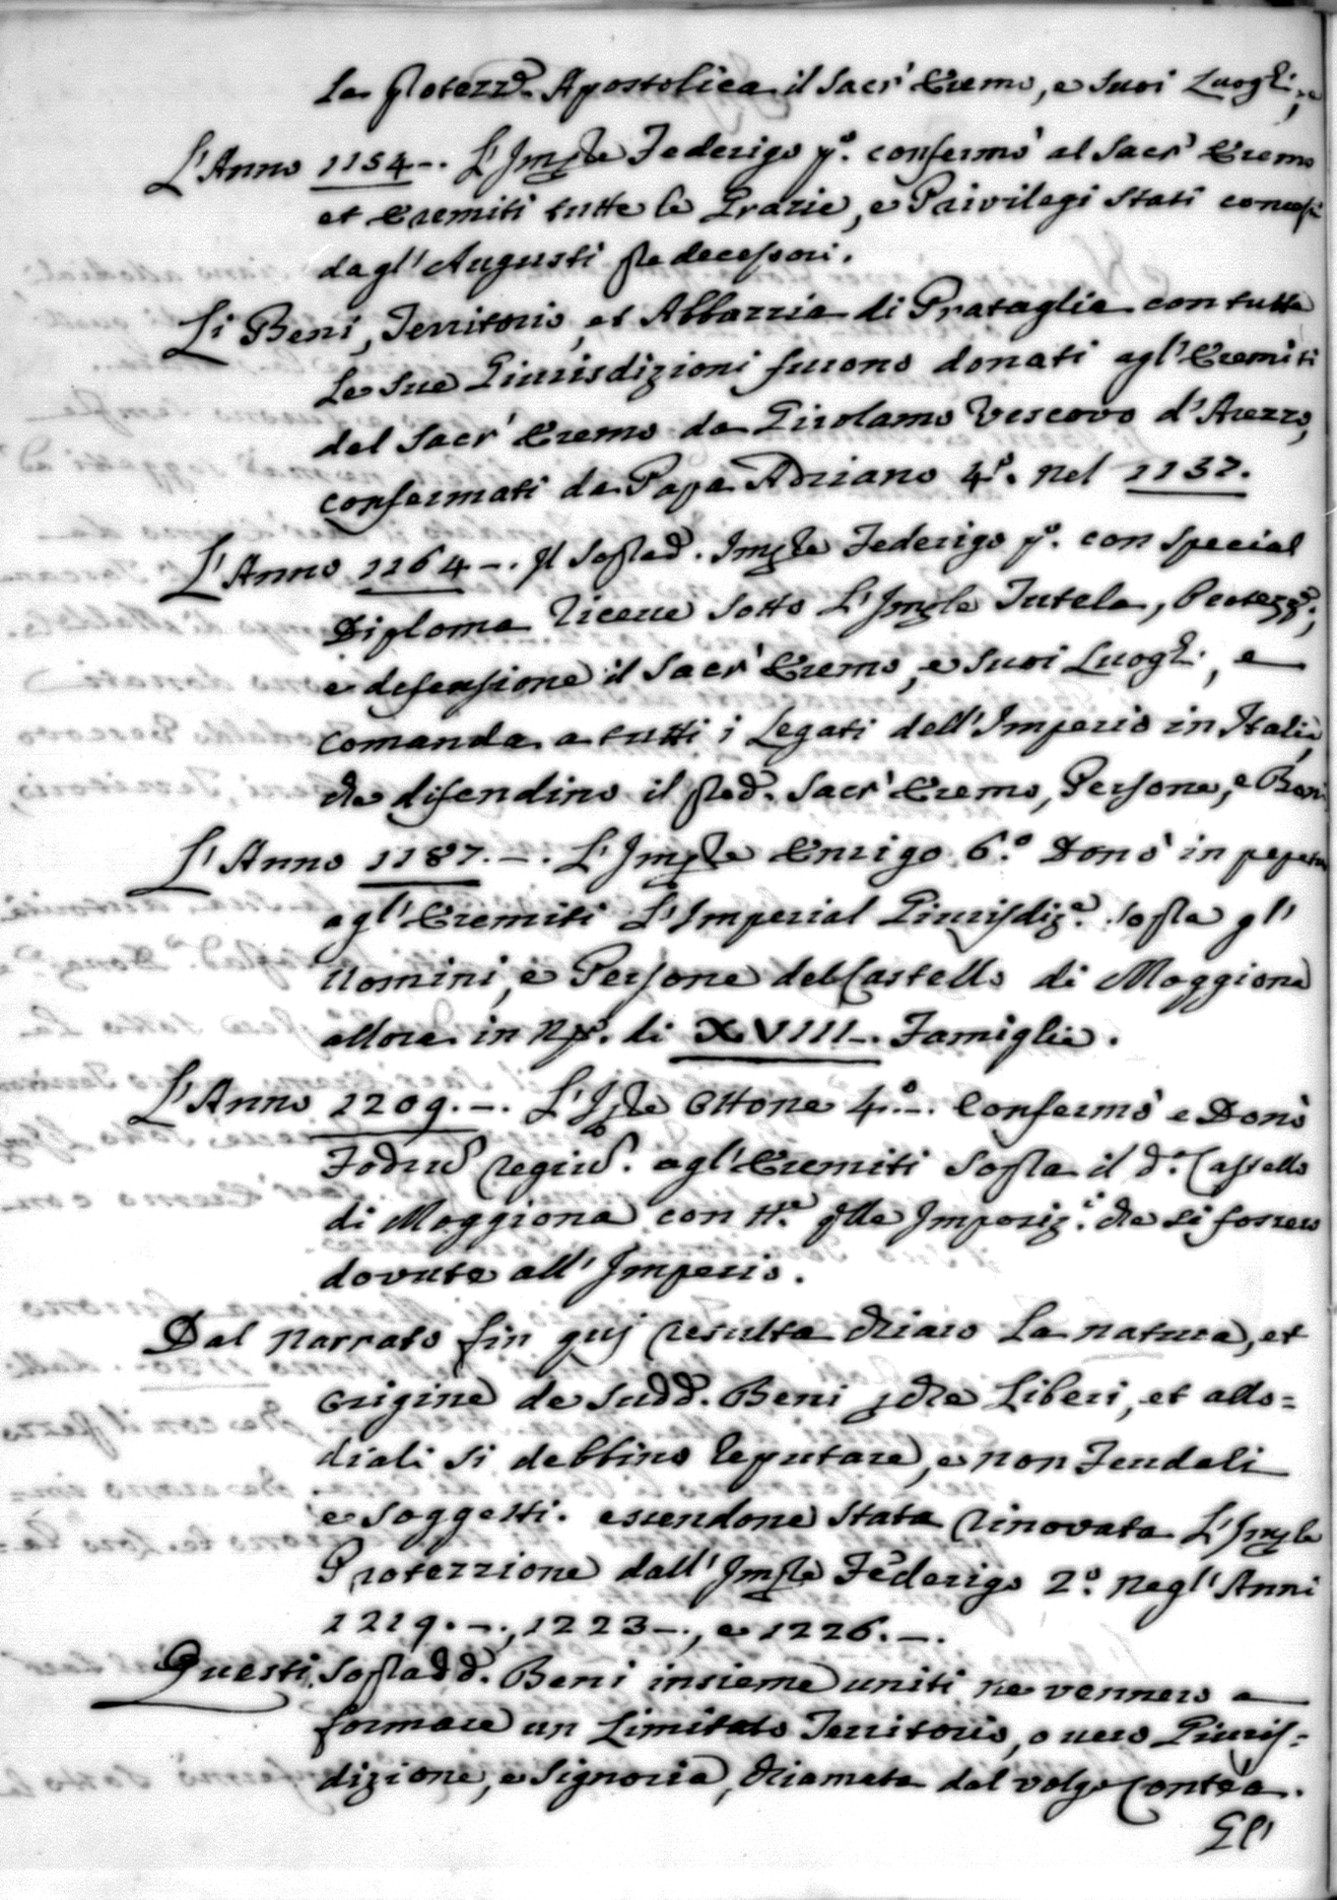 la Protezz.e Apostolica il Sacr' Eremo, e Suoi Luoghi; e
L'Anno 1154 -. L'Imp.le Federigo p.o confermò al Sacr' Eremo
et Eremiti tutte le Grazie, e Privilegi stati concessi
dagl' Augusti Predecessori.
Li Beni, Territorio, et Abbazzia di Prataglia con tutte
le sue Giurisdizioni furono donati agl' Eremiti
del Sacr' Eremo da Girolamo Vescovo d'Arezzo,
confermati da Papa Adriano 4.o nel 1157.
L'Anno 1164 -. Il Soprad. Imp.le Federigo p.o con special
Diploma riceve sotto L'Imp.le Tutela, Protezz.e,
e defensione il Sacr' Eremo, e Suoi Luoghi, e
comanda a tutti i Legati dell'Imperio in Italia,
che difendino il pred. Sacr' Eremo, Persone, e Beni
L'Anno 1187. -. L'Imp.le Enrigo 6.o Donò in
agl' Eremiti L'Imperial Giurisdiz.e sopra gl'
Uomini, e Persone del Castello di Moggiona
allora in di XVIII -. Famiglie.
L'Anno 1209. -. L'I.le Ottone 4.o -. Confermò e Donò
Fodrud regiud. agl' Eremiti sopra il d.o Castello
di Moggiona con tt.e q.lle Imposiz.i che si fossero
dovute all' Imperio.
Dal Narrato fin quj resulta chiaro la natura, et
origine de Sudd. Beni che Liberi, et allo=
diali si debbino reputare, e non Feudali
e soggetti. essendone stata rinovata L'Imp.le
Protezzione dall' Imp.le Federigo 2.o negl' Anni
1219. -., 1223 -., e 1226. -.
Questi Sopradd. Beni insieme uniti ne vennero a
formare un Limitato Territorio, o vero Giuris=
dizione, e Signoria, chiamata dal volgo Contèa.
Gl'